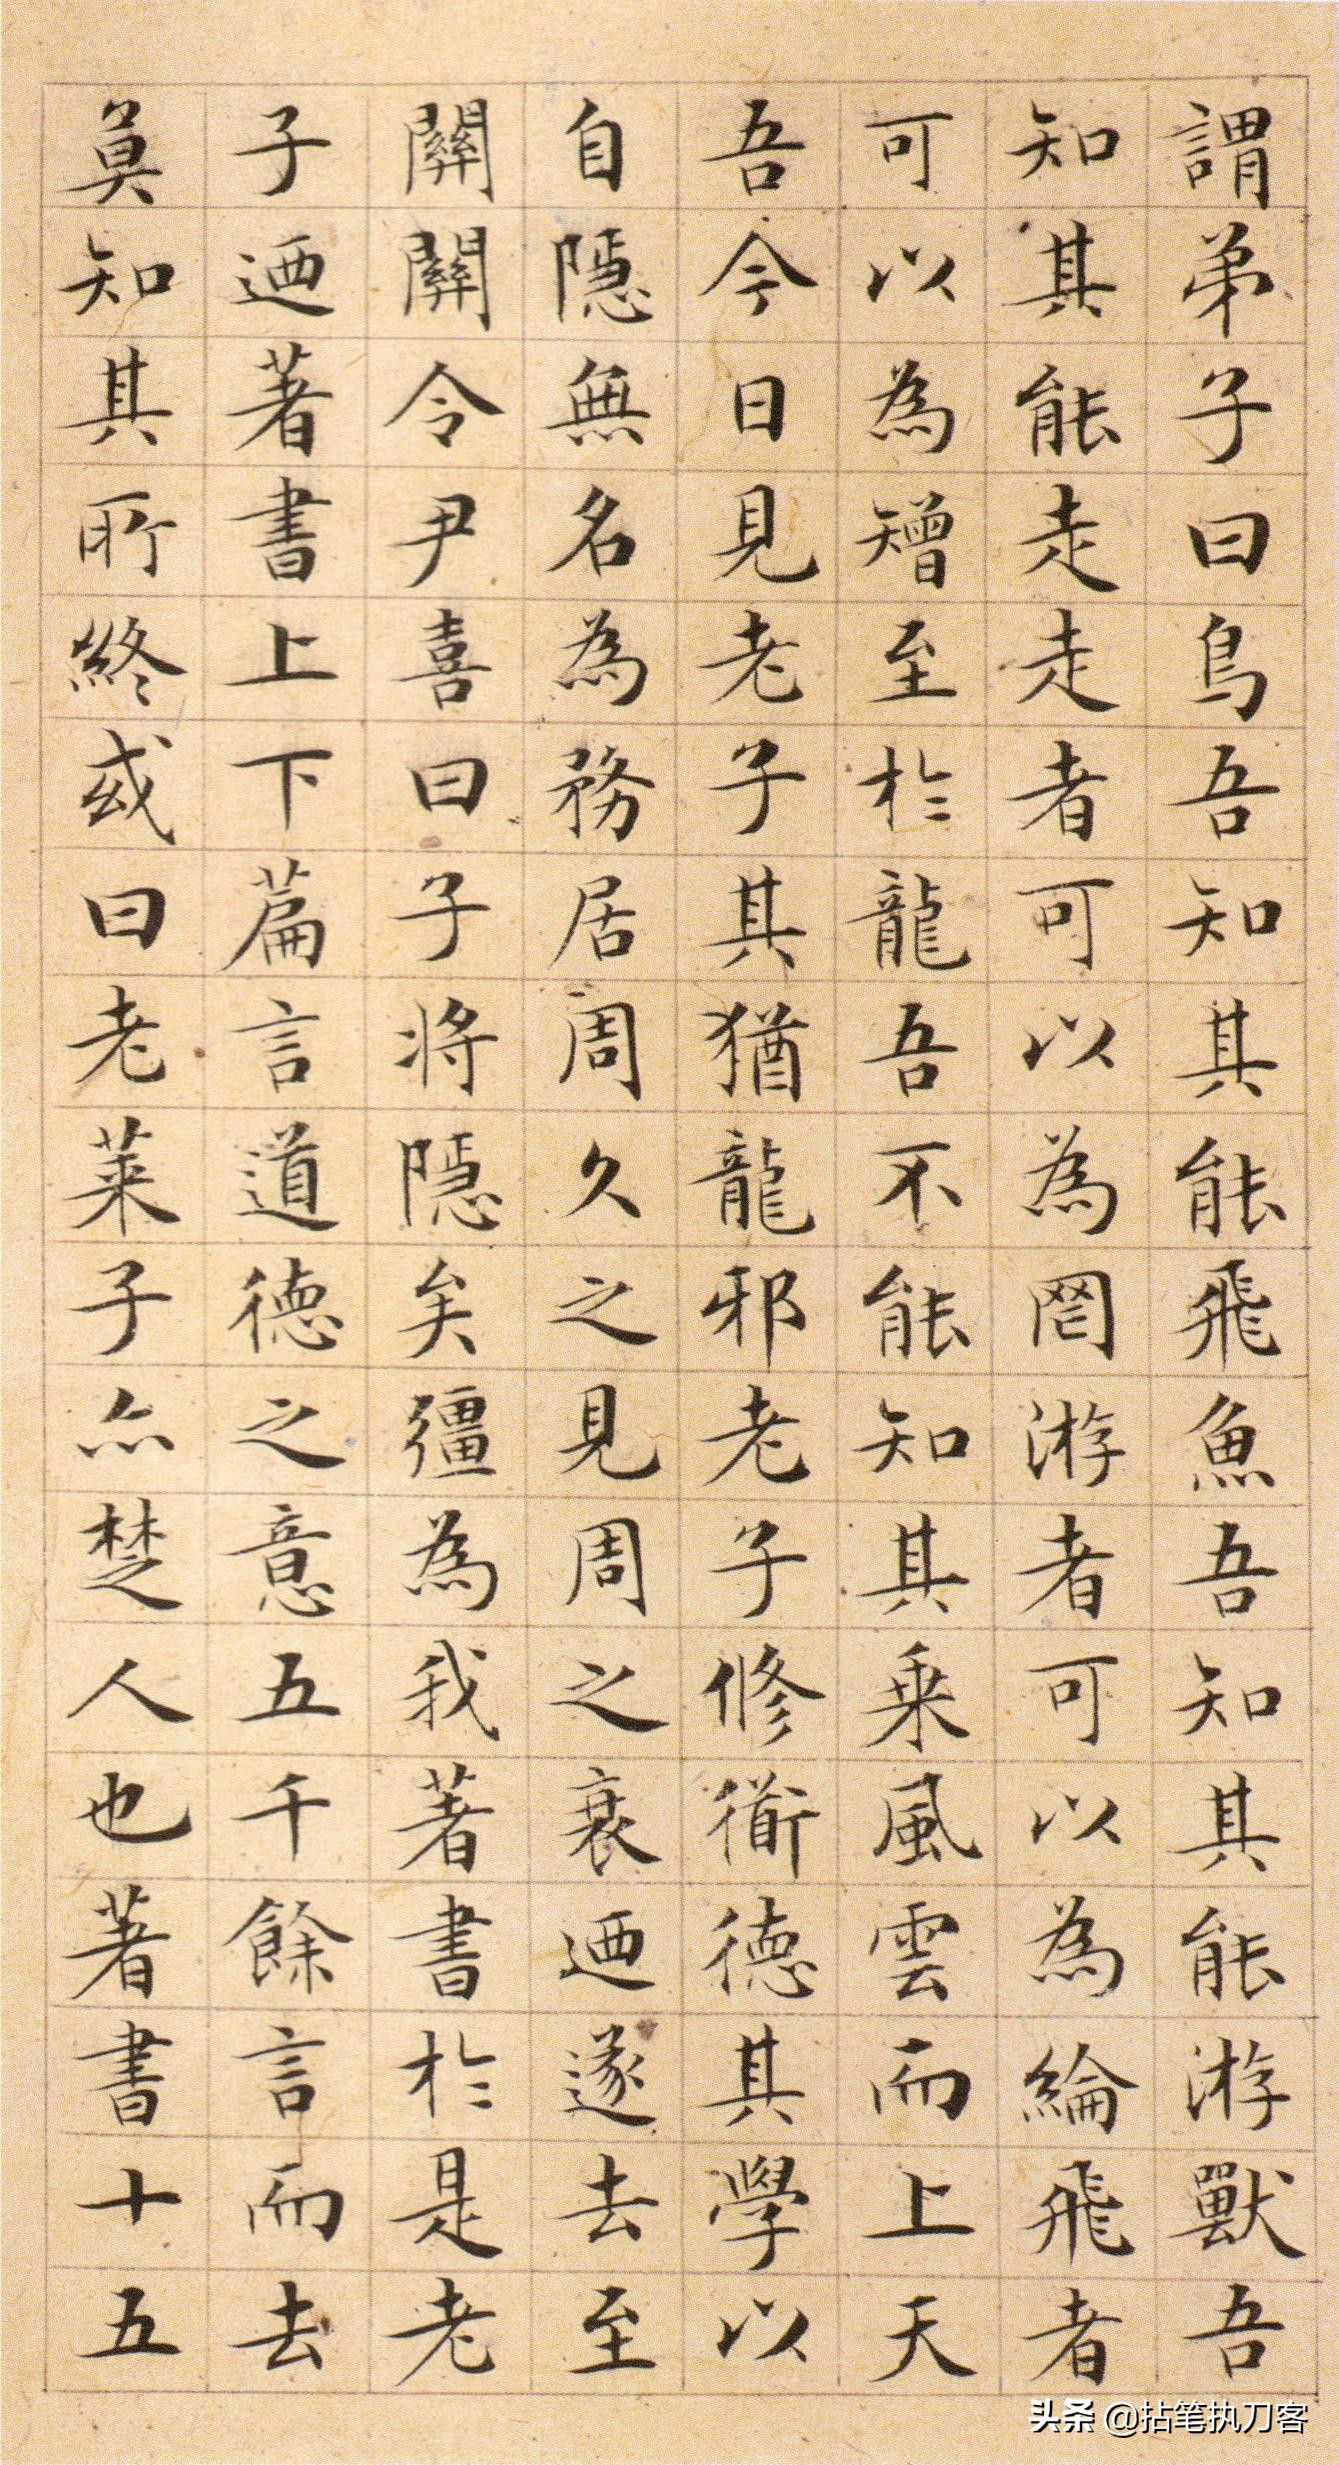 謂弟子曰鳥吾知其能飛魚吾知其能游獸吾
知其能走走者可以為罔游者可以為綸飛者
可以為矰至於龍吾不能知其乗風雲而上天
吾今日見老子其猶龍邪老子修衟德其學以
自隱無名為務居周久之見周之衰迺遂去至
關關令尹喜曰子將隱矣彊為我著書於是老
子迺著書上下篇言道德之意五千餘言而去
莫知其所終或曰老萊子亦楚人也著書十五
头条 @拈笔执刀客